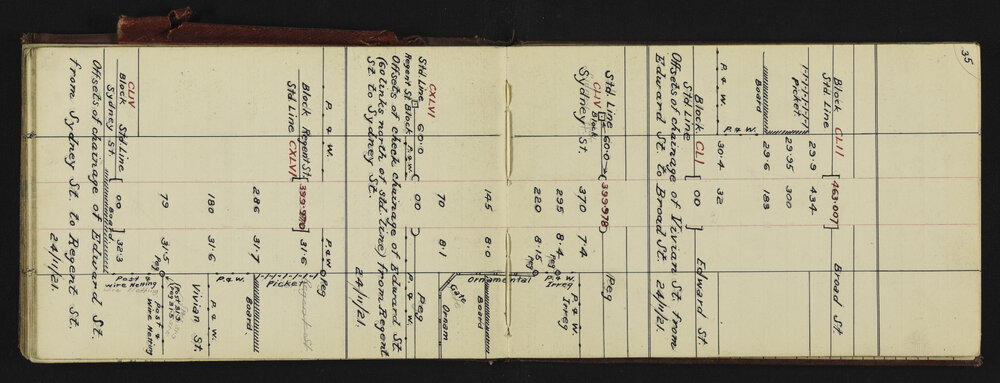 35
Block CLII
Std Line
[463.007]
Broad St.
Picket
29.9
434
29.95
300
Board
29.6
183
P. & W.
P. & W.
30.4
32
Block CLI
Std Line
[00]
Edward St.
Offsets of chainage of Vivian St. from
Edward St. to Broad St. 24/11/21.
Std Line 60.0
CLIV Block
Sydney St.
(399.978)
Peg
370
7.4
P. & W.
Irreg
295
8.4
P. & W.
Irreg
220
8.15
Peg
Ornamental
145
8.0
Board
70
8.1
Gate
Dream
CXLVI
Std Line 60.0
Regent St. Block P. & W.
(00)
P. & W.
Peg
Offsets of check chainage of Edward St
(60 links north of std. line) from Regent
St. to Sydney St.
24/11/21.
P. & W.
Block Regent St.
Std Line CXLVI
[399.970]
31.6
P. & W.
Peg
Regent St.
286
31.7
Picket
Board.
180
31.6
P. & W.
Vivian St.
79
31.5
Peg
(Post 31.3
(Peg 31.5
Post &
wire Netting
CLIV
Block Std Line
Sydney St.
[00
Board
32.3
Post &
wire Netting
Offsets of chainage of Edward St.
from Sydney St. to Regent St.
24/11/21.